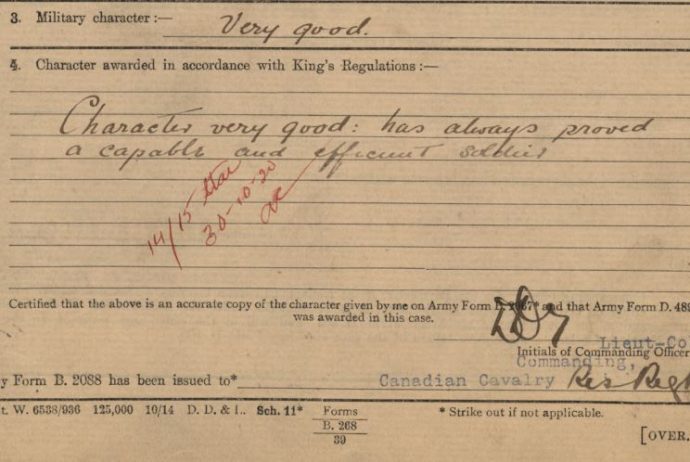 3. Military character :—
Very good.
4. Character awarded in accordance with King's Regulations :—
Character very good: has always proved
a capable and efficient soldier
14/15 Star
30-10-20
Certified that the above is an accurate copy of the character given by me on Army Form B. 2067* and that Army Form D. 489
was awarded in this case.
Lieut-Co
Initials of Commanding Officer
Commanding,
y Form B. 2088 has been issued to*
Canadian Cavalry Res Regt
t. W. 6538/936 125,000 10/14 D. D. & L. Sch. 11* Forms B. 268 39
* Strike out if not applicable.
[OVER.